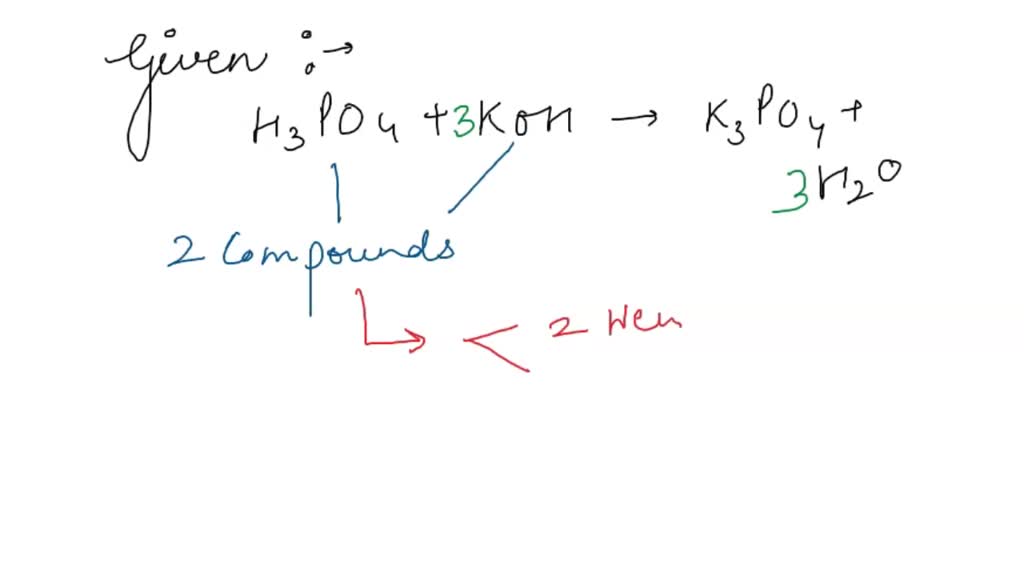 Given :→
H₃PO₄ + 3KOH → K₃PO₄ +
3H₂O
2 Compounds
→ < 2 new